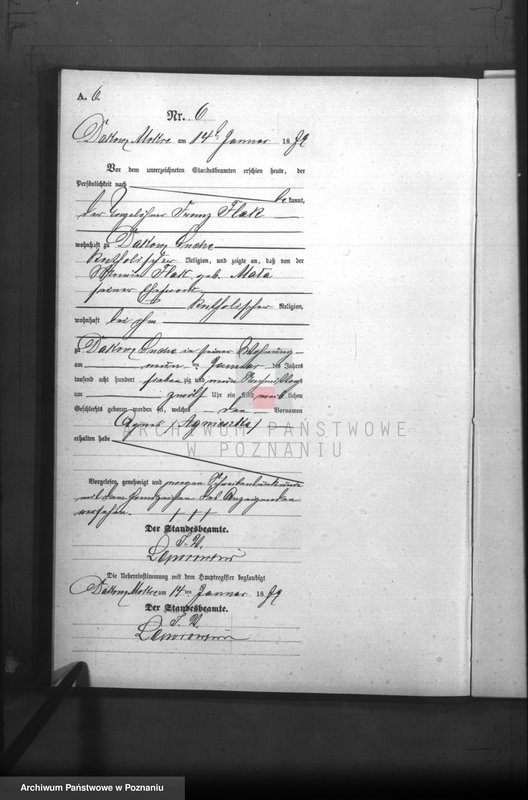 A. 6.
Nr. 6
Dakowy Mokre am 14 Januar 1879
Vor dem unterzeichneten Standesbeamten erschien heute, der
Persönlichkeit nach bekannt,
der Tagelöhner Franz Flak
wohnhaft zu Dakowy Suche
katholischer Religion, und zeigte an, daß von der
Flak geb. Mata
seiner Ehefrau
katholischer Religion,
wohnhaft bei ihm
zu Dakowy Suche in seiner Wohnung
am neun ten Januar des Jahres
tausend acht hundert siebenzig und neun Nachmittags
um zwölf Uhr ein Kind weiblichen
Geschlechts geboren worden sei, welches den Vornamen
Agnes /Agnieszka/
erhalten habe
Vorgelesen, genehmigt und wegen Schreibensunkunde
mit dem Handzeichen des Anzeigenden
versehen. +++
Der Standesbeamte.
J. V.
Die Uebereinstimmung mit dem Hauptregister beglaubigt
Dakowy Mokre am 14 ten Januar 1879
Der Standesbeamte.
J. V.
ARCHIWUM PAŃSTWOWE
W POZNANIU
Archiwum Państwowe w Poznaniu